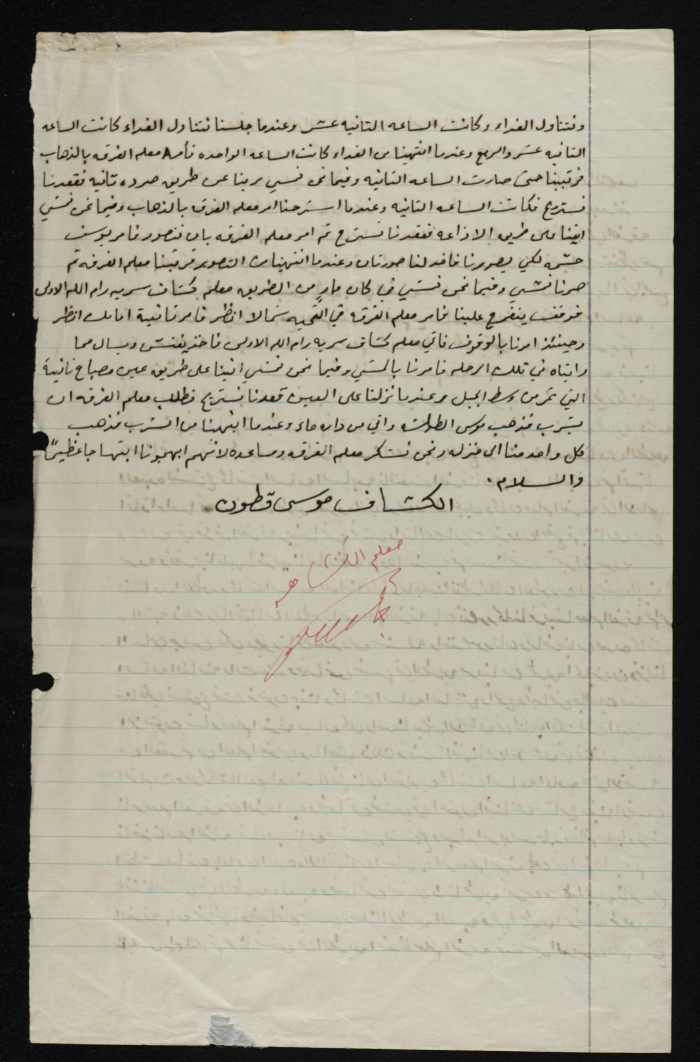 ونتناول الغداء وكانت الساعه الثانيه عشر وعندما جلسنا نتناول الغداء كانت الساعه
الثانيه عشر والربع وعندما انتهينا من الغداء كانت الساعه الواحده فأمر معلم الفرقه بالذهاب
فرتبنا حتى صارت الساعه الثانيه وفيما نحن نمشي مرينا عن طريق صرده ثانيه فقعدنا
نستريح فكانت الساعه الثانيه وعندما استرحنا امر معلم الفرق بالذهاب وفيما نحن نمشي
اتينا على طريق الاذاعه فقعدنا نستريح ثم امر معلم الفرقه بان نتصور فامر يوسف
حشمه لكي يصورنا فاخذ لنا صورتان وعندما انتهينا من التصوير فرتبنا معلم الفرقه ثم
صرنا نمشي وفيما نحن نمشي في كان مار من الطريق معلم كشاف سريه رام الله الاولى
فوقف يتفرج علينا فامر معلم الفرقه في التحيه شمالا انظر فامر ثانية امامك انظر
وحينئذ امرنا بالوقوف فأتي معلم كشاف سريه رام الله الاولى فاخذ يفتش ويسال مما
رايناه في تلك الرحله فامرنا بالمشي وفيما نحن نمشي اتينا على طريق عين مصباح ثانية
التي تمر من وسط الجبل وعندما نزلنا على العين قعدنا نستريح فطلب معلم الفرقه ان
يشرب فذهب موسى واتي من داره ماء وعندما انتهينا من الشرب فذهب
كل واحد منا الى منزله ونحن نشكر معلم الفرقه ومساعده لانهم ابهجونا ابتهاجا عظيماً
والسلام.
الكشاف موسى قطون
معلم الكشافه